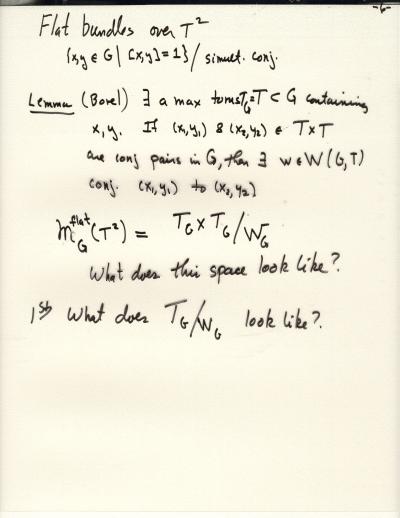 -6-
Flat bundles over T²
{x,y ∈ G | [x,y]=1}/simult. conj.
Lemma (Borel) ∃ a max torus T_G=T ⊂ G containing
x, y. If (x₁,y₁) & (x₂,y₂) ∈ T×T
are conj pairs in G, then ∃ w ∈ W(G,T)
conj. (x₁,y₁) to (x₂,y₂)
M_G^flat (T²) = T_G × T_G / W_G
What does this space look like?
1st What does T_G/W_G look like?